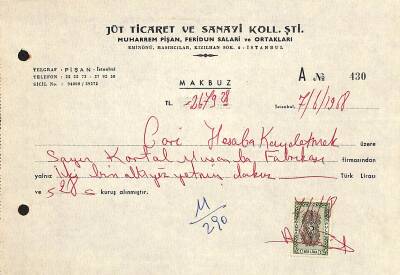 JÜT TİCARET VE SANAYİ KOLL. ŞTİ.
MUHARREM PİŞAN, FERİDUN SALARİ ve ORTAKLARI
EMİNÖNÜ, HASIRCILAR, KIZILHAN SOK. 6 - İSTANBUL
TELGRAF : PİŞAN - İstanbul
TELEFON : 22 52 73 - 27 92 30
SİCİL No. : 94000 / 39272
MAKBUZ
A № 430
TL. 2679
İstanbul, 7/6/1968
Cari Hesaba Kaydetmek üzere
Sayın Kartal Fabrikası firmasından
yalnız iki bin altıyüz yetmiş dokuz Türk Lirası
ve kuruş alınmıştır.
M
290